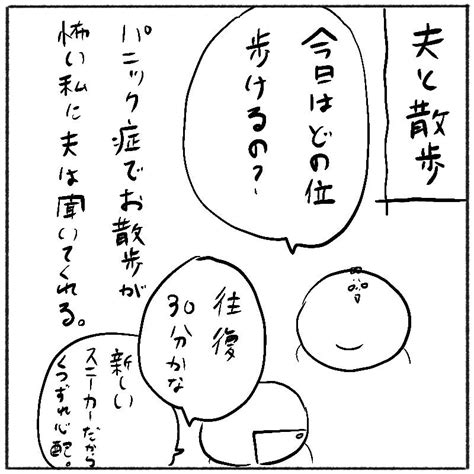 夫と散歩
今日はどの位
歩けるの？
パニック症でお散歩が
怖い私に夫は聞いてくれる。
往復
30分かな
新しい
スニーカーだから
くつずれ心配。